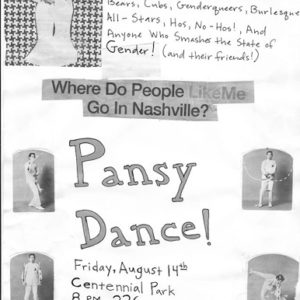 Bears, Cubs, Genderqueers, Burlesque
All-Stars, Hos, No-Hos!, And
Anyone Who Smashes the State of
Gender! (and their friends!)
Where Do People LikeMe
Go In Nashville?
Pansy
Dance!
Friday, August 14th
Centennial Park
8 PM